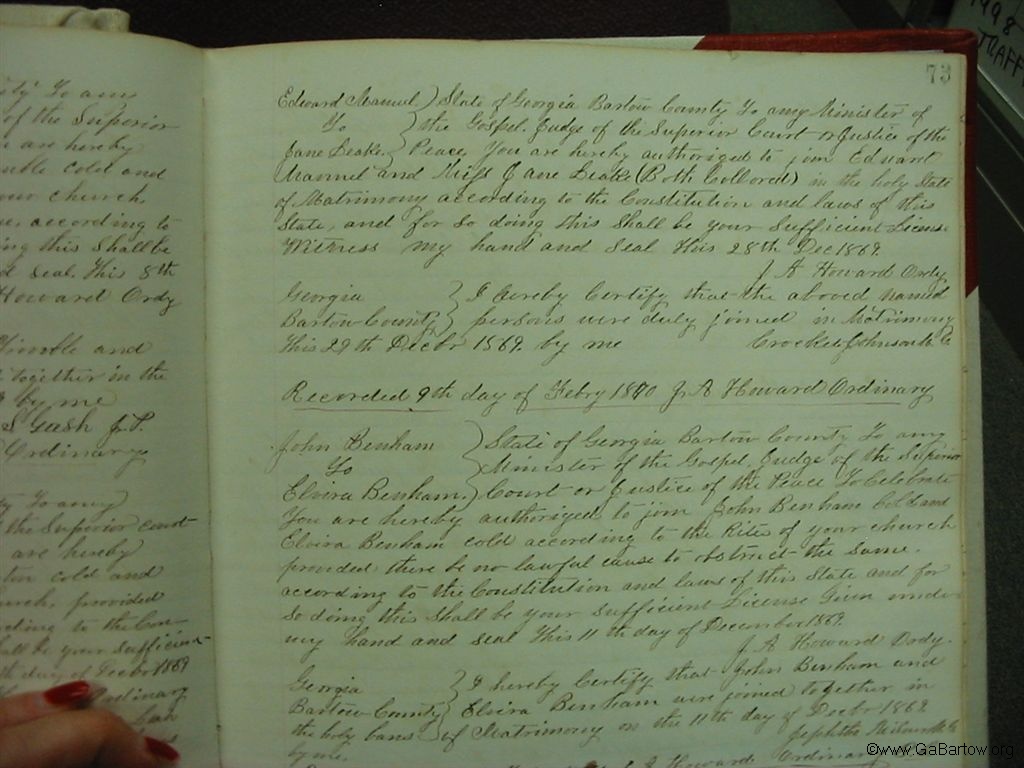 ity To any
of the Superior
u are hereby
cold and
church,
, according to
ing this Shall be
d seal. This 8th
Howard Ordy
and
together in the
by me
Gash J.P.
Ordinary
ty To any
the Superior court
are hereby
cold and
urch, provided
rding to the Con
hall be your Sufficient
th day of Decbr 1869
Ordinary
73
Edward Manuel ) State of Georgia Bartow County To any Minister of
To } the Gospel. Judge of the Superior Court or Justice of the
Jane Leake. } Peace, You are hereby authorized to join Edward
Manuel and Miss Jane Leake (Both Collored) in the holy State
of Matrimony according to the Constitution and laws of this
State, and for So doing this Shall be your Sufficient License
Witness my hand and Seal this 28th Dec 1869.
J. A Howard Ordy,
Georgia } I hereby Certify that the aboved named
Bartow County } persons were duly joined in Matrimony
this 29th Decbr 1869. by me Crocket Johnson
Recorded 9th day of Febry 1870 J. A Howard Ordinary
John Benham } State of Georgia Bartow County To any
To } Minister of the Gospel, Judge of the Superior
Elvira Benham. } Court or Justice of the Peace To Celebrate
You are hereby authorized to join John Benham Cold and
Elvira Benham cold according to the Rites of your church
provided there be no lawful cause to obstruct the Same.
according to the Constitution and laws of this State and for
So doing this Shall be your Sufficient License Given under
my hand and seal this 11th day of December 1869.
J. A Howard Ordy.
Georgia } I hereby Certify that John Benham and
Bartow County } Elvira Benham were joined together in
the holy bans of Matrimony on the 11th day of Decbr 1869
by me. Jephtha
Howard Ordinary
1998
TRAFF
©www.GaBartow.org